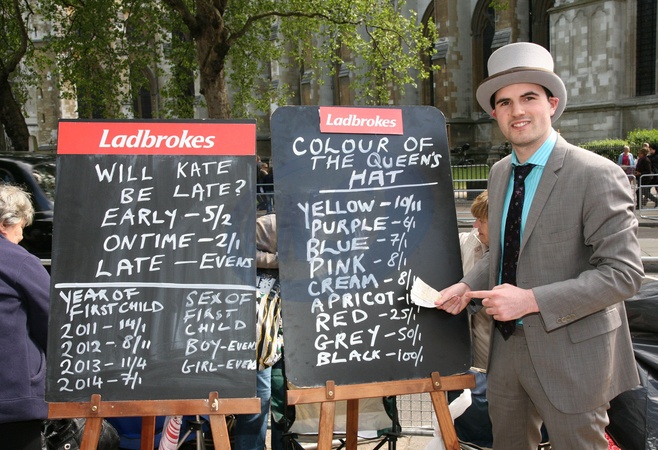 Ladbrokes
WILL KATE
BE LATE?
EARLY - 5/2
ON TIME - 2/1
LATE - EVENS
YEAR OF
FIRST CHILD
2011 - 14/1
2012 - 8/11
2013 - 11/4
2014 - 7/1
SEX OF
FIRST
CHILD
BOY-EVEN
GIRL-EVEN
Ladbrokes
COLOUR OF
THE QUEEN'S
HAT
YELLOW - 10/11
PURPLE - 6/1
BLUE - 7/1
PINK - 8/1
CREAM - 8/1
APRICOT -
RED - 25/1
GREY - 50/1
BLACK - 100/1